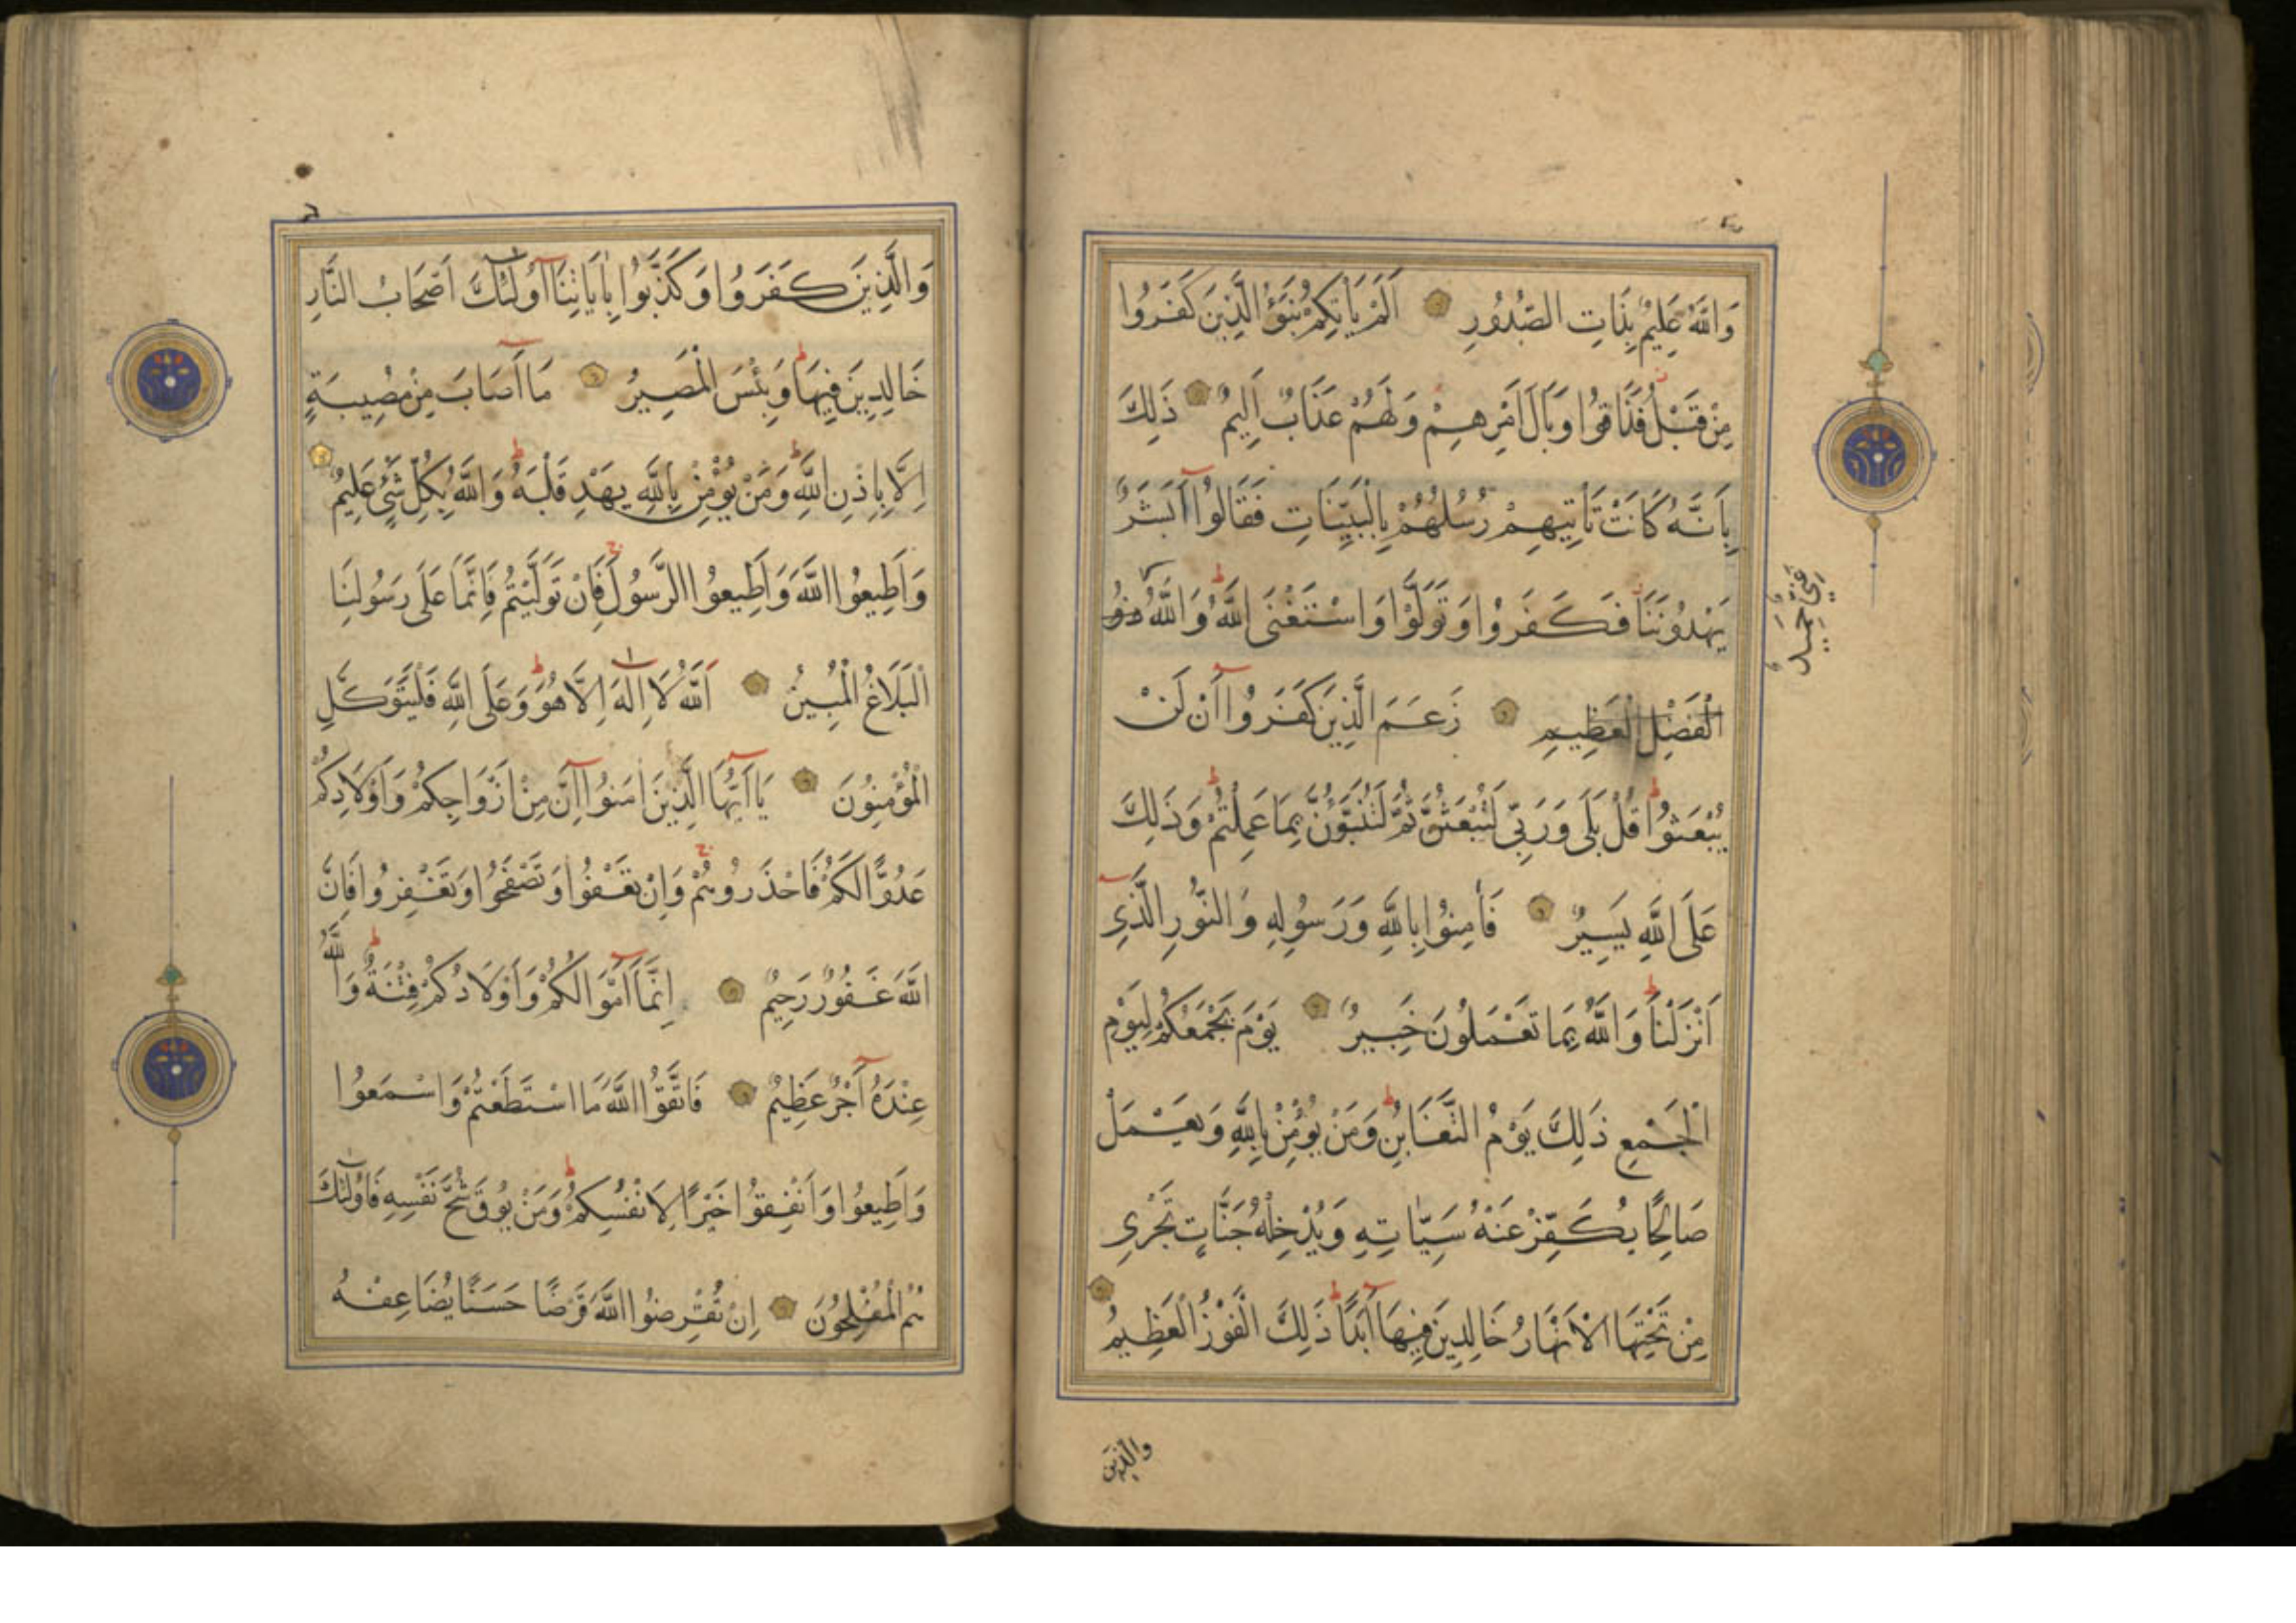 وَاللّٰهُ عَلِيمٌ بِذَاتِ الصُّدُورِ اَلَمْ يَاْتِكُمْ نَبَؤُ الَّذِينَ كَفَرُوا
مِنْ قَبْلُ فَذَاقُوا وَبَالَ اَمْرِهِمْ وَلَهُمْ عَذَابٌ اَلِيمٌ ذٰلِكَ
بِاَنَّهُ كَانَتْ تَاْتِيهِمْ رُسُلُهُمْ بِالْبَيِّنَاتِ فَقَالُوا اَبَشَرٌ
يَهْدُونَنَا فَكَفَرُوا وَتَوَلَّوْا وَاسْتَغْنَى اللّٰهُ وَاللّٰهُ ذُو
غَنِيٌّ حَمِيدٌ
الْفَضْلِ الْعَظِيمِ زَعَمَ الَّذِينَ كَفَرُوا اَنْ لَنْ
يُبْعَثُوا قُلْ بَلَى وَرَبِّي لَتُبْعَثُنَّ ثُمَّ لَتُنَبَّؤُنَّ بِمَا عَمِلْتُمْ وَذَلِكَ
عَلَى اللّٰهِ يَسِيرٌ فَاٰمِنُوا بِاللّٰهِ وَرَسُولِهِ وَالنُّورِ الَّذِي
اَنْزَلْنَا وَاللّٰهُ بِمَا تَعْمَلُونَ خَبِيرٌ يَوْمَ يَجْمَعُكُمْ لِيَوْمِ
الْجَمْعِ ذَلِكَ يَوْمُ التَّغَابُنِ وَمَنْ يُؤْمِنْ بِاللّٰهِ وَيَعْمَلْ
صَالِحًا يُكَفِّرْ عَنْهُ سَيِّاٰتِهِ وَيُدْخِلْهُ جَنَّاتٍ تَجْرِي
مِنْ تَحْتِهَا الْاَنْهَارُ خَالِدِينَ فِيهَا اَبَدًا ذَلِكَ الْفَوْزُ الْعَظِيمُ
والَّذِينَ
وَالَّذِينَ كَفَرُوا وَكَذَّبُوا بِاٰيَاتِنَا اُولٰئِكَ اَصْحَابُ النَّارِ
خَالِدِينَ فِيهَا وَبِئْسَ الْمَصِيرُ مَا اَصَابَ مِنْ مُصِيبَةٍ
اِلَّا بِاِذْنِ اللّٰهِ وَمَنْ يُؤْمِنْ بِاللّٰهِ يَهْدِ قَلْبَهُ وَاللّٰهُ بِكُلِّ شَيْءٍ عَلِيمٌ
وَاَطِيعُوا اللّٰهَ وَاَطِيعُوا الرَّسُولَ فَاِنْ تَوَلَّيْتُمْ فَاِنَّمَا عَلَى رَسُولِنَا
الْبَلَاغُ الْمُبِينُ اَللّٰهُ لَا اِلٰهَ اِلَّا هُوَ وَعَلَى اللّٰهِ فَلْيَتَوَكَّلِ
الْمُؤْمِنُونَ يَا اَيُّهَا الَّذِينَ اٰمَنُوا اِنَّ مِنْ اَزْوَاجِكُمْ وَاَوْلَادِكُمْ
عَدُوًّا لَكُمْ فَاحْذَرُوهُمْ وَاِنْ تَعْفُوا وَتَصْفَحُوا وَتَغْفِرُوا فَاِنَّ
اللّٰهَ غَفُورٌ رَحِيمٌ اِنَّمَا اَمْوَالُكُمْ وَاَوْلَادُكُمْ فِتْنَةٌ وَاللّٰهُ
عِنْدَهُ اَجْرٌ عَظِيمٌ فَاتَّقُوا اللّٰهَ مَا اسْتَطَعْتُمْ وَاسْمَعُوا
وَاَطِيعُوا وَاَنْفِقُوا خَيْرًا لِاَنْفُسِكُمْ وَمَنْ يُوقَ شُحَّ نَفْسِهِ فَاُولٰئِكَ
هُمُ الْمُفْلِحُونَ اِنْ تُقْرِضُوا اللّٰهَ قَرْضًا حَسَنًا يُضَاعِفْهُ